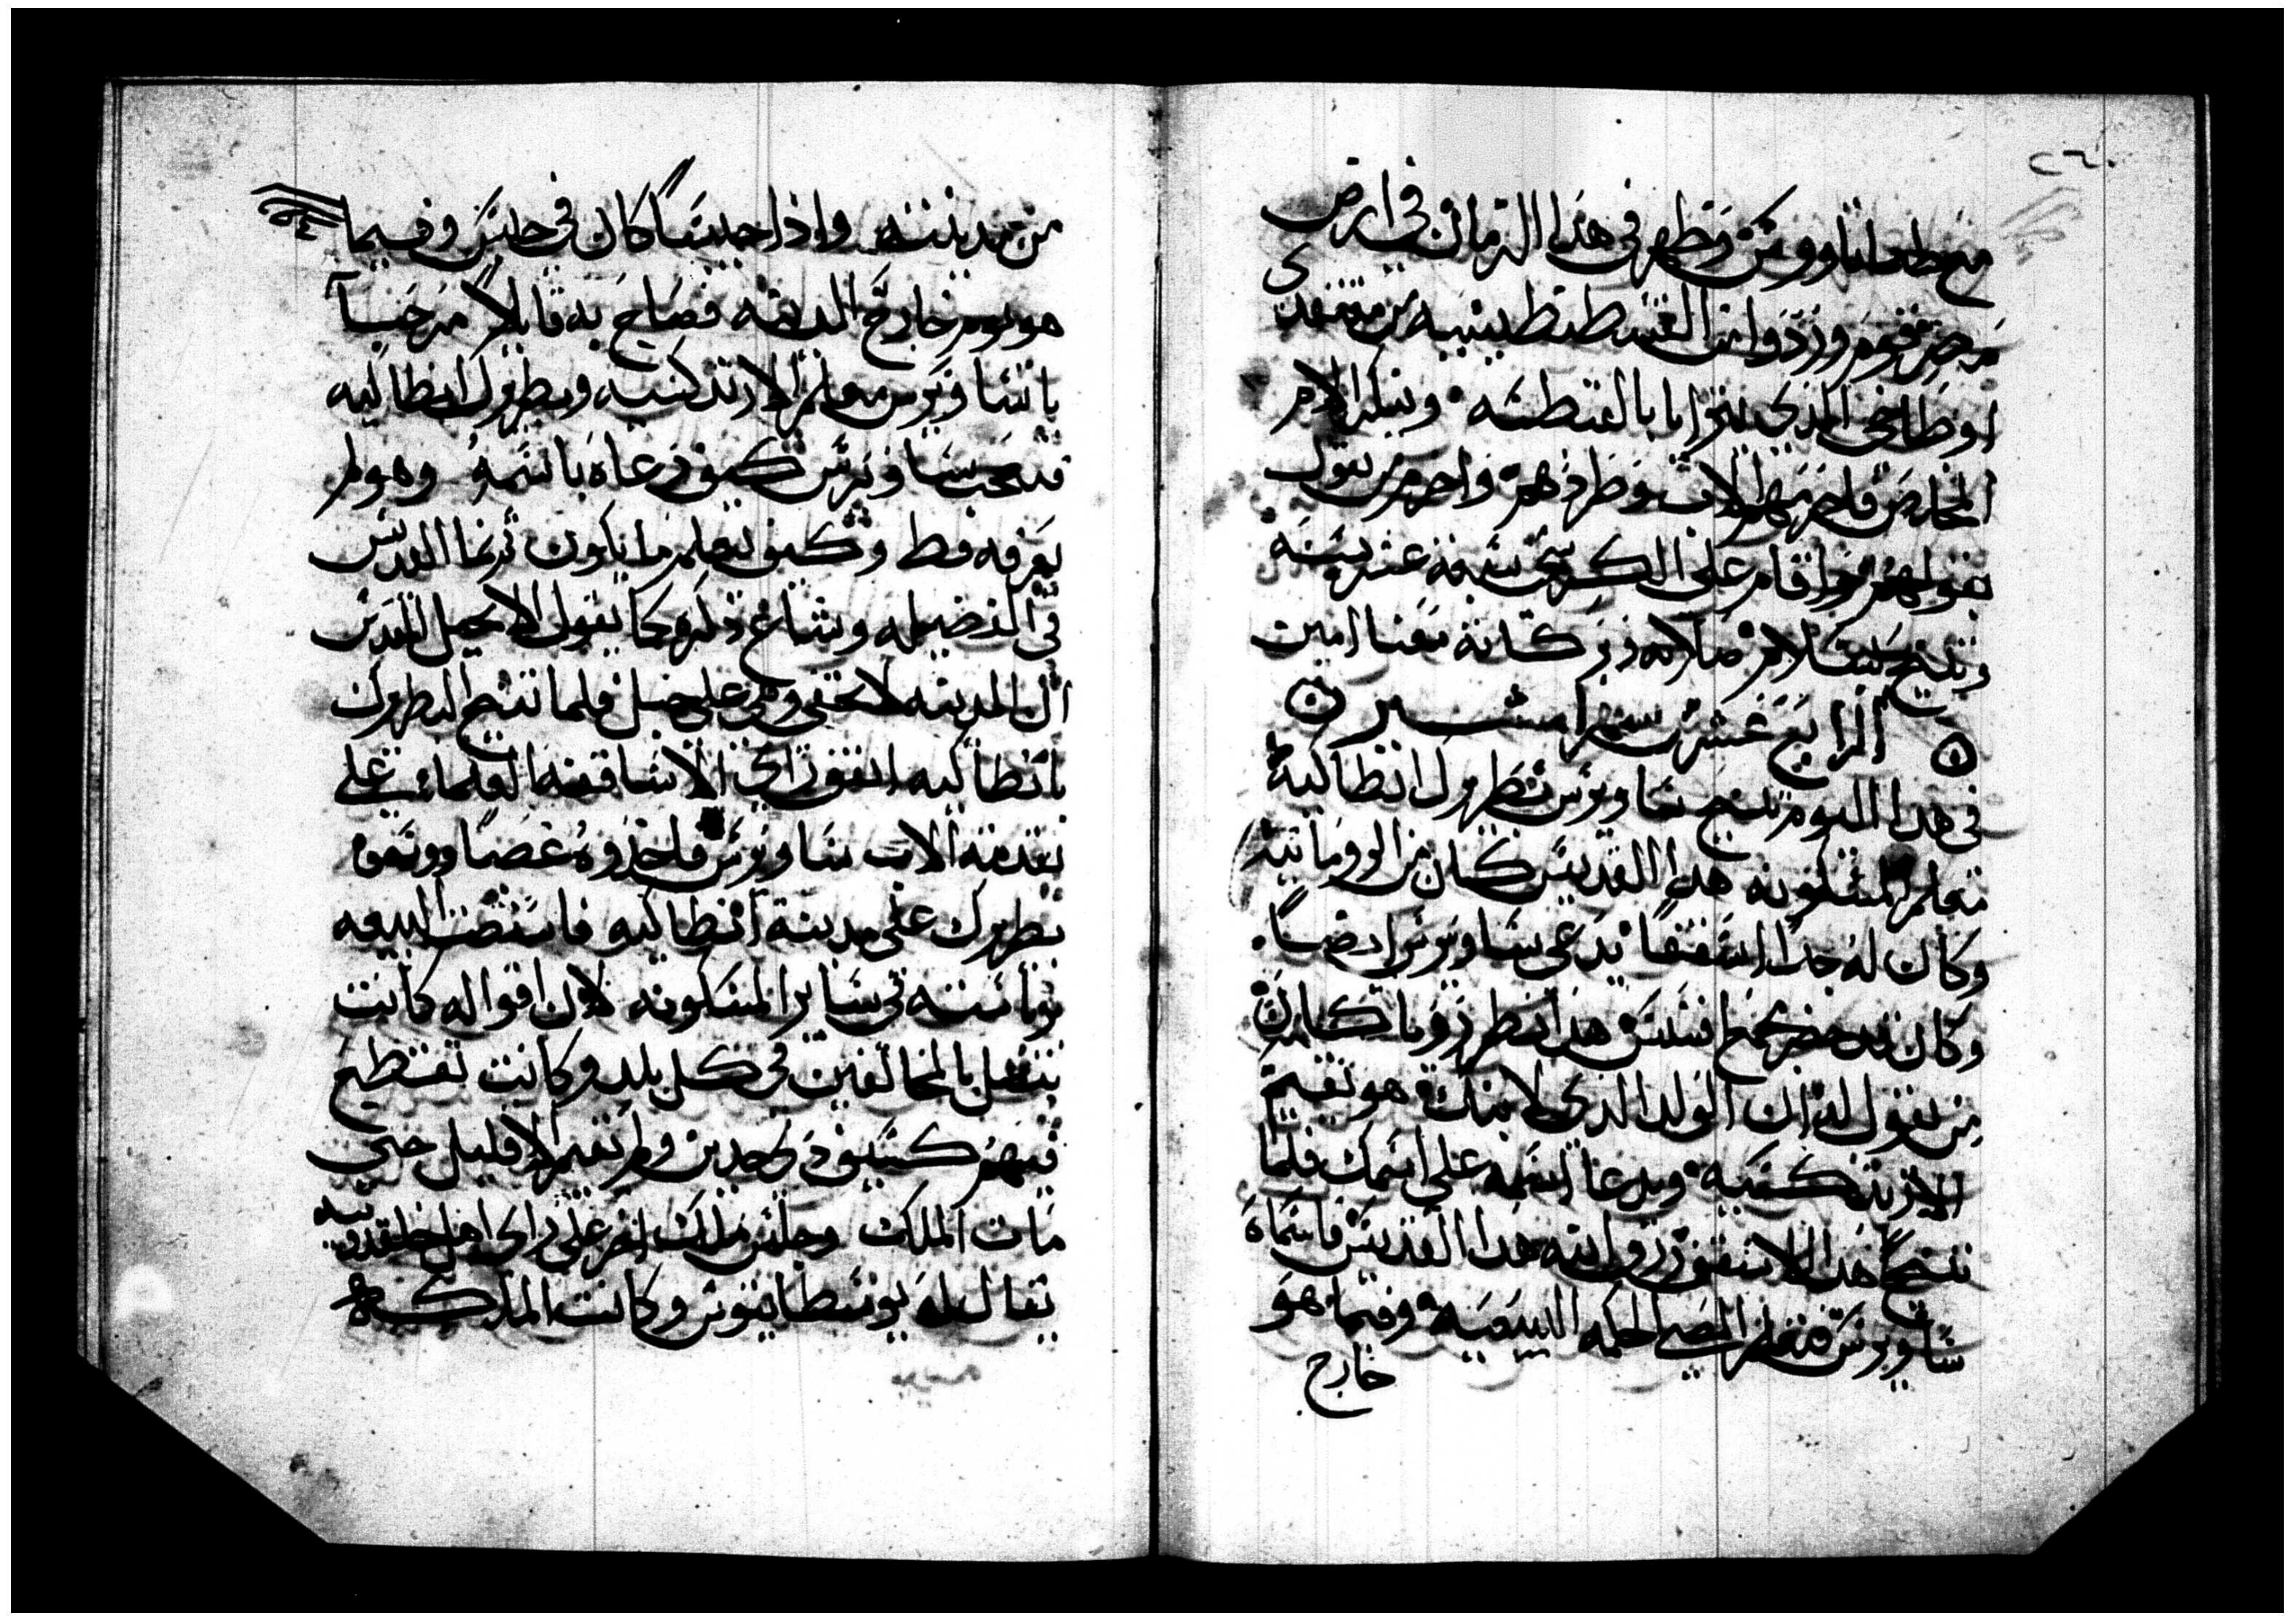 ٢٦٠
مع طماتاووس وظهر في هذا الزمان في ارض
مصر قوم وردوا من القسطنطينيه من معتقدى
اوطاخي الذي ببوا بابا بالقسطنه وينكر الالام
المخلصه فاحرمهم الاب وطردهم واحرم من يقول
بقولهم واقام على الكرسي سبعة عشر سنه
وتنيح بسلام صلاته وبركاته معنا امين
الرابع عشر من شهر امشير
في هذا اليوم تنيح ساويرس بطريرك انطاكيه
معلم المسكونه هذا القديس كان من الرومانيه
وكان له جدا اسقفا يدعى ساويرس ايضا
وكان قد حضر مجمع افسس هذا نظر رويا كان
من يقول له ان الولد الذي لابنك هو يقيم
الارتدكسيه ويدعا اسمه على اسمك فلما
تنيح هذا الاسقف ورزق ابنه هذا القديس فاسماه
ساويرس فتعلم الحكمه البيعيه وفيما هو
خارج
من مدينته واذا حبيسا كان في حبيس وفيما
هو يوم خارج المدينه فصاح به قايلا مرحبا
يا ساويرس معلم الارتدكسيه وبطريرك انطاكيه
فتعجب ساويرس كيف دعاه باسمه وهو لم
يعرفه قط وكيف يعلم ما يكون ثم نما القديس
في الفضيله وشاع ذكره كما يقول الانجيل المقدس
ان المدينه لا تخفى وهي على جبل فلما تنيح بطريرك
انطاكيه اتفق راي الاساقفه العلماء على
تقدمة الاب ساويرس فاخذوه غصبا ووسموه
بطريرك على مدينة انطاكيه فاستضت البيعه
برياسته في ساير المسكونه لان اقواله كانت
تتصل بالمخالفين في كل بلد وكانت تقطع
فيهم كسيف ذي حدين ولم تقم الا قليل حتى
مات الملك وجلس ملك اخر على راي اهل خلقدونيه
يقال له يوسطانيوس وكانت الملكه